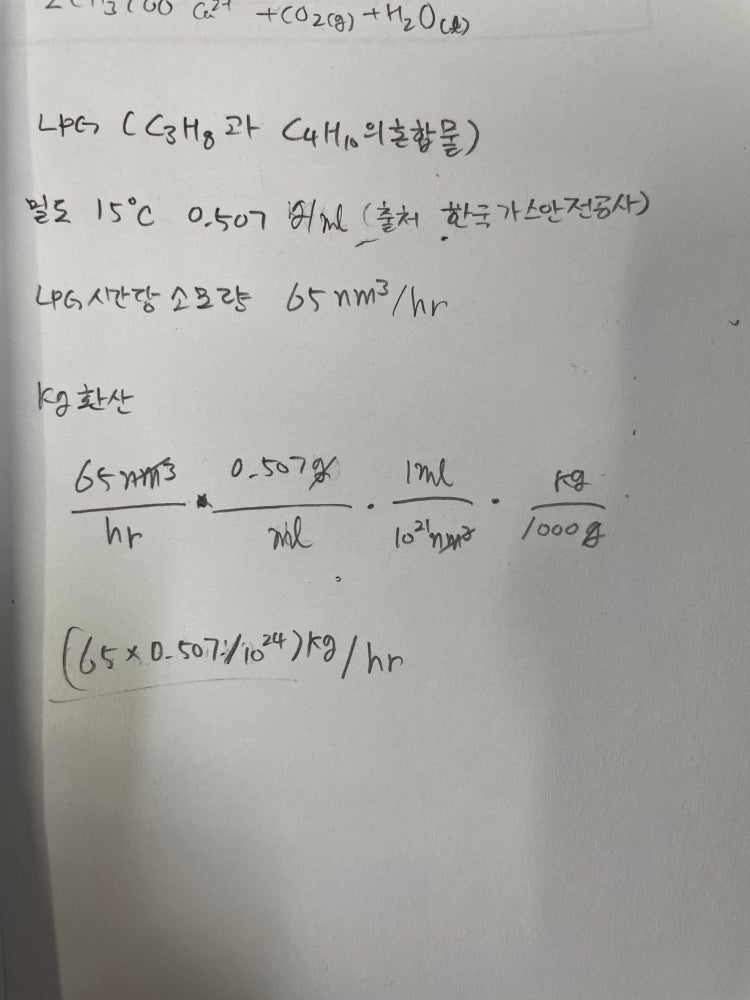 2CH3COO Ca²⁺ +CO2(g)+H2O(l)
LPG (C3H8과 C4H10의혼합물)
밀도 15°C 0.507 g/ml (출처 한국가스안전공사)
LPG시간당 소모량 65nm³/hr
kg환산
65nm³/hr · 0.507g/ml · 1ml/10²¹nm³ · kg/1000g
(65×0.507/10²⁴)kg/hr